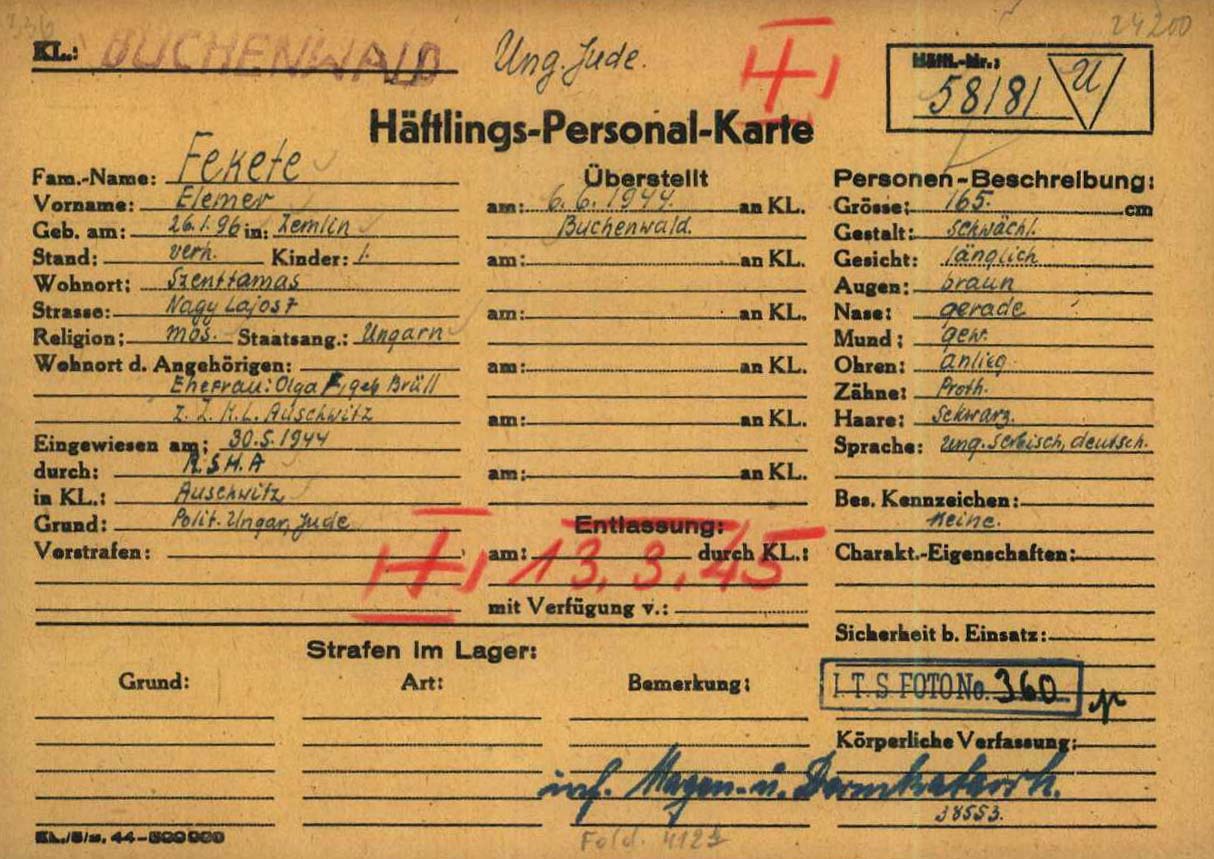 24200
KL.: BUCHENWALD Ung. Jude.
Häftl.-Nr.: 58181 U
Häftlings-Personal-Karte
Fam.-Name: Fekete
Vorname: Elemer
Geb. am: 26.1.96 in: Zemlin
Stand: verh. Kinder: 1.
Wohnort: Szenttamas
Strasse: Nagy Lajos 7
Religion: mos. Staatsang.: Ungarn
Wohnort d. Angehörigen:
Ehefrau: Olga F, geb Brüll
z. Z. K.L. Auschwitz
Eingewiesen am: 30.5.1944
durch: R.S.H.A
in KL.: Auschwitz
Grund: Polit. Ungar, Jude
Vorstrafen:
Überstellt
am: 6.6.1944. an KL.
Buchenwald.
am: an KL.
am: an KL.
am: an KL.
am: an KL.
am: an KL.
Entlassung:
am: 13.3.45 durch KL.:
mit Verfügung v.:
Personen-Beschreibung:
Grösse: 165. cm
Gestalt: schwächl.
Gesicht: länglich
Augen: braun
Nase: gerade
Mund: gew.
Ohren: anlieg.
Zähne: Proth.
Haare: schwarz.
Sprache: ung. serbisch, deutsch.
Bes. Kennzeichen:
Keine.
Charakt.-Eigenschaften:
Sicherheit b. Einsatz:
I.T.S FOTO No. 360
Körperliche Verfassung:
inf. Magen- u. Darmkatarrh.
38553.
Strafen im Lager:
Grund: Art: Bemerkung:
KL./5/11. 44-500000
Fold. 4121